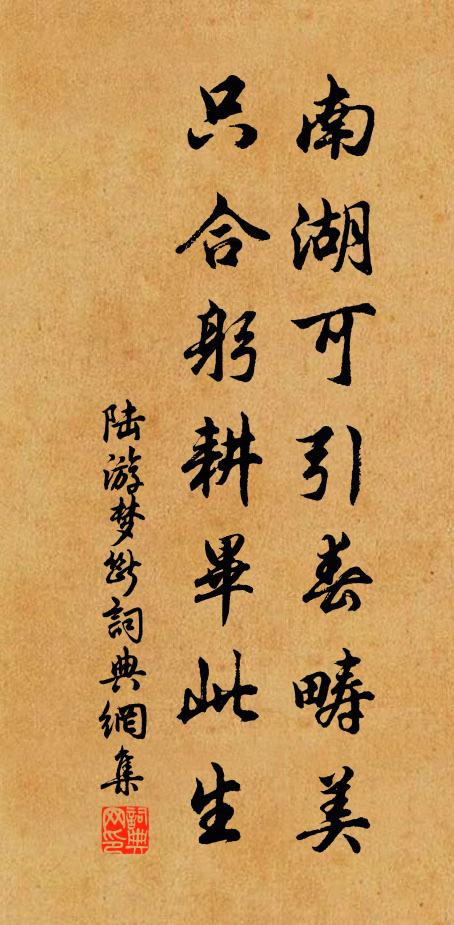 南湖可引春畴美
只合躬耕畢此生
陆游梦断詞典網集
詞典
网印